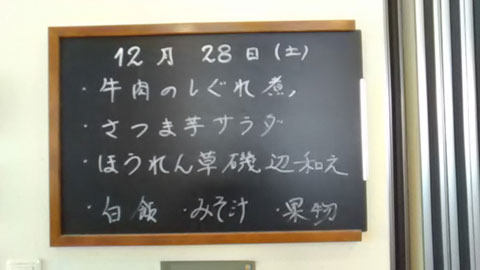 12月 28日(土)
・牛肉のしぐれ煮
・さつま芋サラダ
・ほうれん草磯辺和え
・白飯 ・みそ汁 ・果物